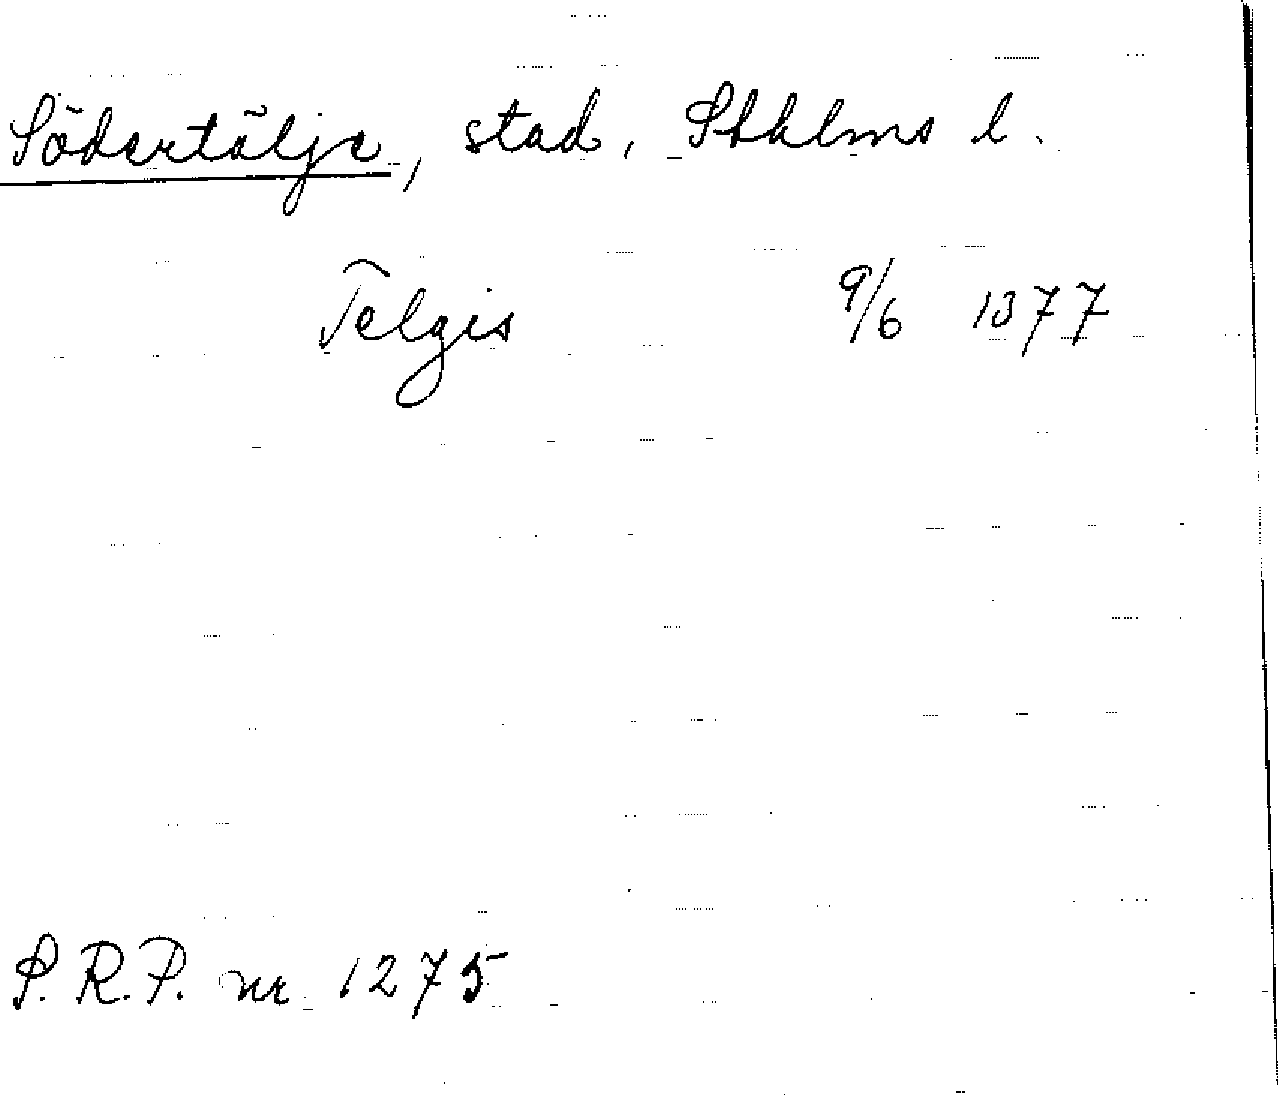 Södertälje, stad, Sthlms l.
Telgis 9/6 1377
S.R.P. nr 1275